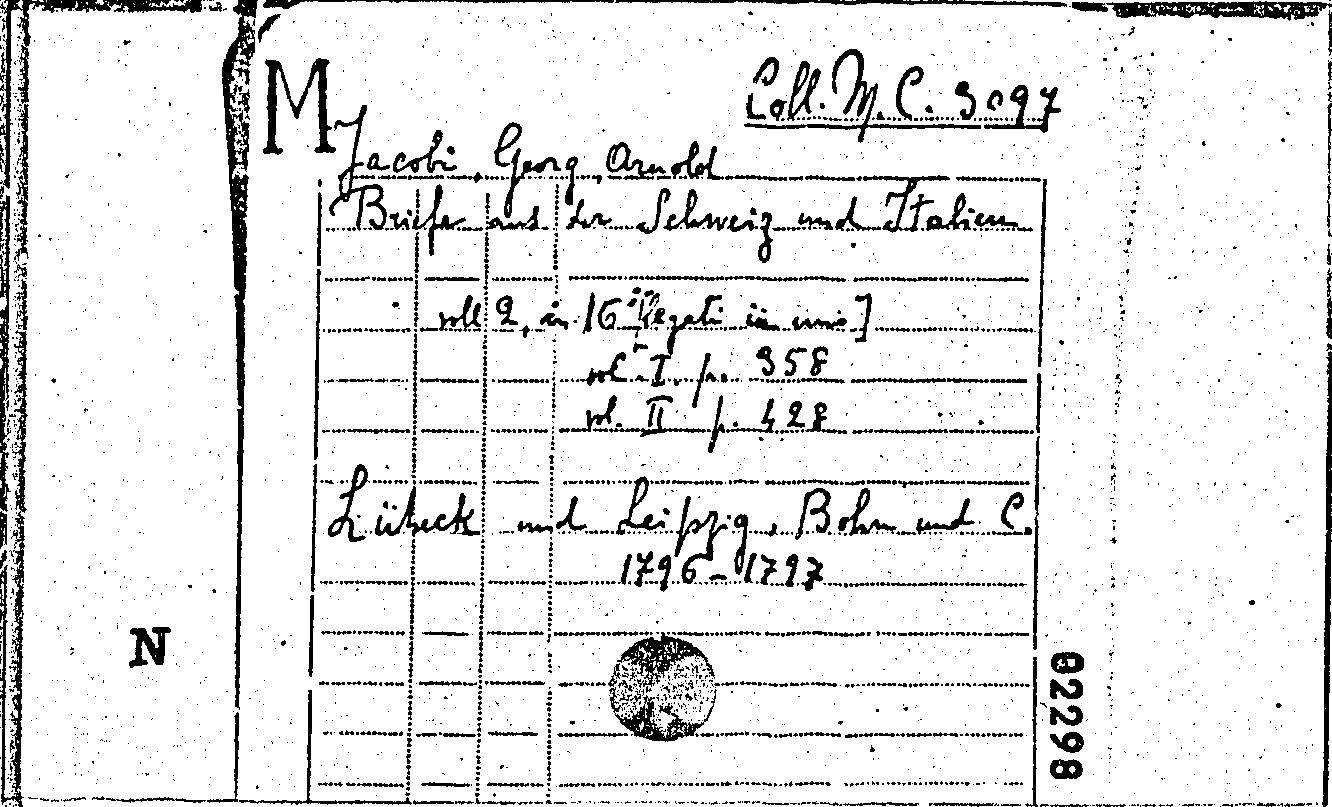 M
Coll. M. C. 3097
Jacobi, Georg, Arnold
Briefe aus der Schweiz und Italien
voll 2, in 16° [legati in uno]
vol. I. p. 358
vol. II p. 428
Lübeck und Leipzig, Bohn und C.
1796-1797
N
02298